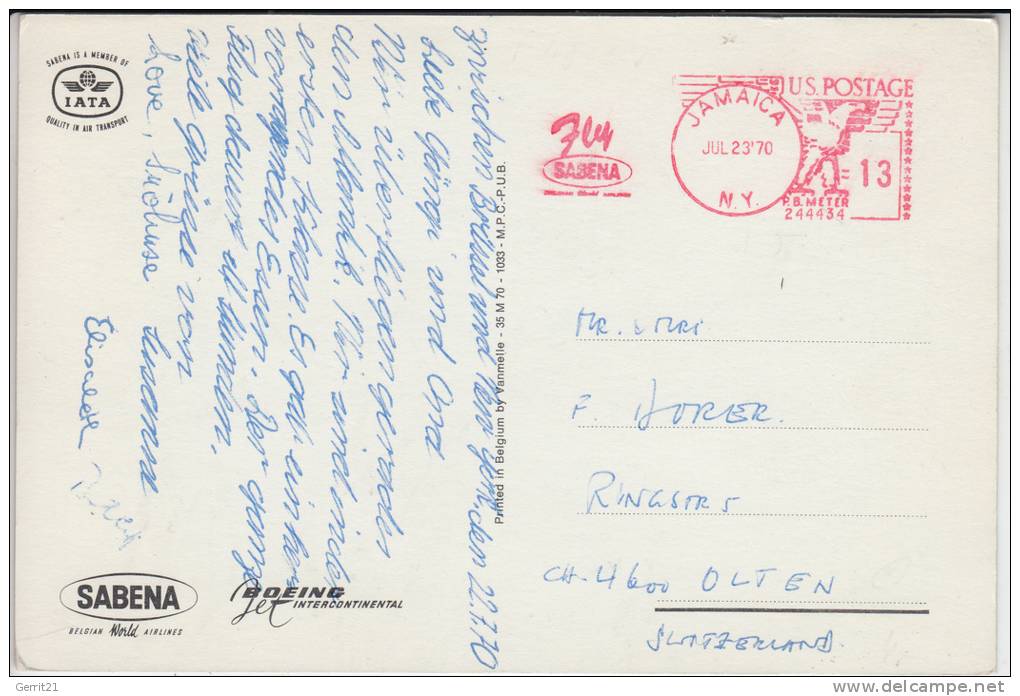 SABENA IS A MEMBER OF
IATA
QUALITY IN AIR TRANSPORT
zwischen Brüssel und New York, den 22.7.70
Liebe Gümgi und Opa
Wir überfliegen gerade
den Atlantik. Wir sind in der
ersten Klasse. Es gab ein her
vorragendes Essen. Der ganze
Flug dauert 8 Stunden.
Viele Grüsse von
Love, Susanna
Elisabeth
SABENA
BELGIAN World AIRLINES
BOEING
Jet INTERCONTINENTAL
Printed in Belgium by Vanmelle - 35 M 70 - 1033 - M.P.C.-P.U.B.
Fly
SABENA
BELGIAN World AIRLINES
JAMAICA
JUL 23'70
N.Y.
U.S. POSTAGE
13
P.B. METER
244434
MR. & MRS
F. HORER.
RINGSTR 5
CH-4600 OLTEN
SWITZERLAND.
Gerrit21
www.delcampe.net